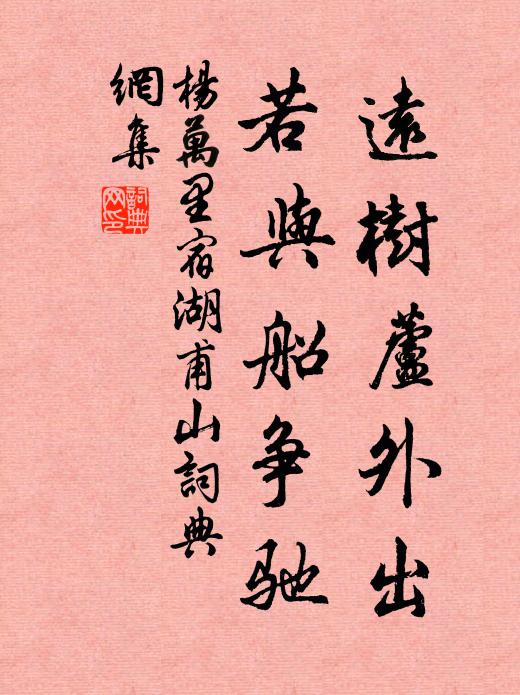 遠樹蘆外出
若與船争馳
楊萬里宿湖甫山詞典
網集
詞典
网印